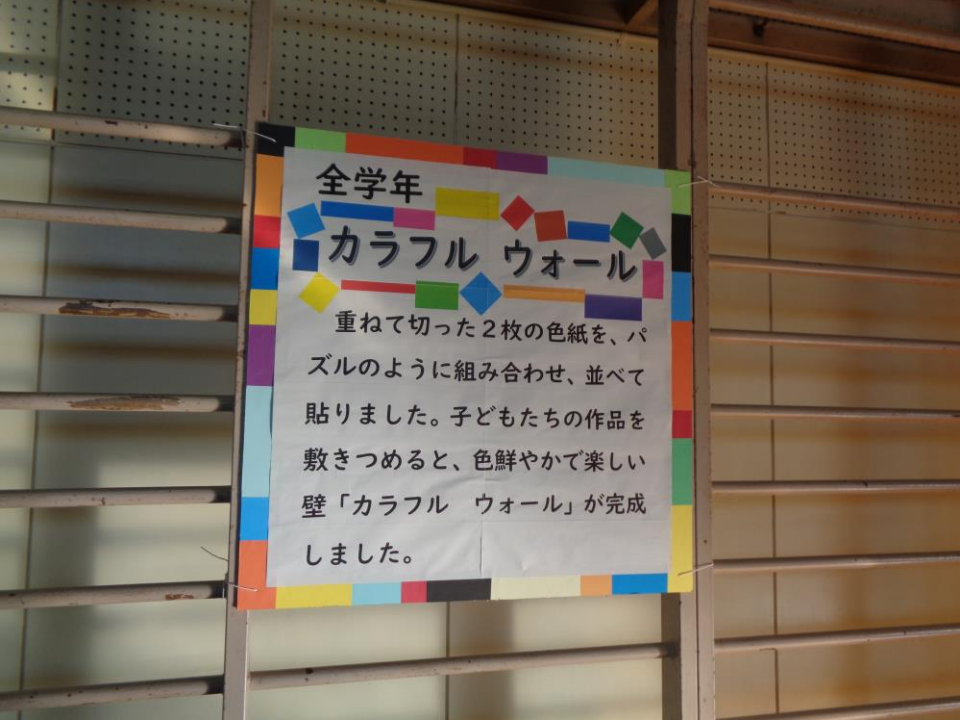 全学年
カラフル ウォール
重ねて切った2枚の色紙を、パ
ズルのように組み合わせ、並べて
貼りました。子どもたちの作品を
敷きつめると、色鮮やかで楽しい
壁「カラフル　ウォール」が完成
しました。